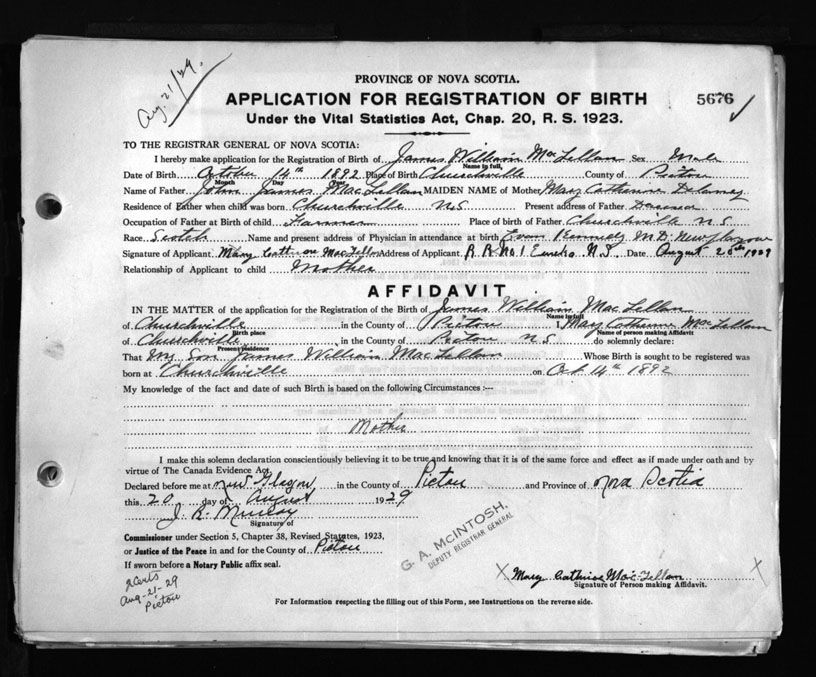 Aug. 21/29.
PROVINCE OF NOVA SCOTIA.
APPLICATION FOR REGISTRATION OF BIRTH
5676
Under the Vital Statistics Act, Chap. 20, R. S. 1923.
TO THE REGISTRAR GENERAL OF NOVA SCOTIA:
I hereby make application for the Registration of Birth of James William MacLellan Sex Male
Name in full,
Date of Birth October 14th 1892 Place of Birth Churchville County of Pictou
Month Day
Name of Father John James MacLellan MAIDEN NAME of Mother Mary Catherine Delaney
Residence of Father when child was born Churchville NS Present address of Father Deceased
Occupation of Father at Birth of child Farmer Place of birth of Father Churchville N.S
Race Scotch Name and present address of Physician in attendance at birth Evan Kennedy M.D. New Glasgow
Signature of Applicant Mary Catherine MacLellan Address of Applicant R R No 1 Eureka N.S. Date August 20th 1929
Relationship of Applicant to child Mother
AFFIDAVIT
IN THE MATTER of the application for the Registration of the Birth of James William MacLellan
Name in full
of Churchville in the County of Pictou I, Mary Catherine MacLellan
Birth place Name of person making Affidavit
of Churchville in the County of Pictou N S do solemnly declare:
Present residence
That My Son James William MacLellan Whose Birth is sought to be registered was
born at Churchville on Oct 14th 1892
My knowledge of the fact and date of such Birth is based on the following Circumstances :—
Mother
I make this solemn declaration conscientiously believing it to be true and knowing that it is of the same force and effect as if made under oath and by
virtue of The Canada Evidence Act.
Declared before me at New Glasgow in the County of Pictou and Province of Nova Scotia
this 20 day of August 1929
J. R. Murray
Signature of
Commissioner under Section 5, Chapter 38, Revised Statutes, 1923,
or Justice of the Peace in and for the County of Pictou
If sworn before a Notary Public affix seal.
G. A. McINTOSH,
DEPUTY REGISTRAR GENERAL
2 Certs
Aug-21-29
Pictou
X Mary Catherine MacLellan X
Signature of Person making Affidavit.
For Information respecting the filling out of this Form, see Instructions on the reverse side.